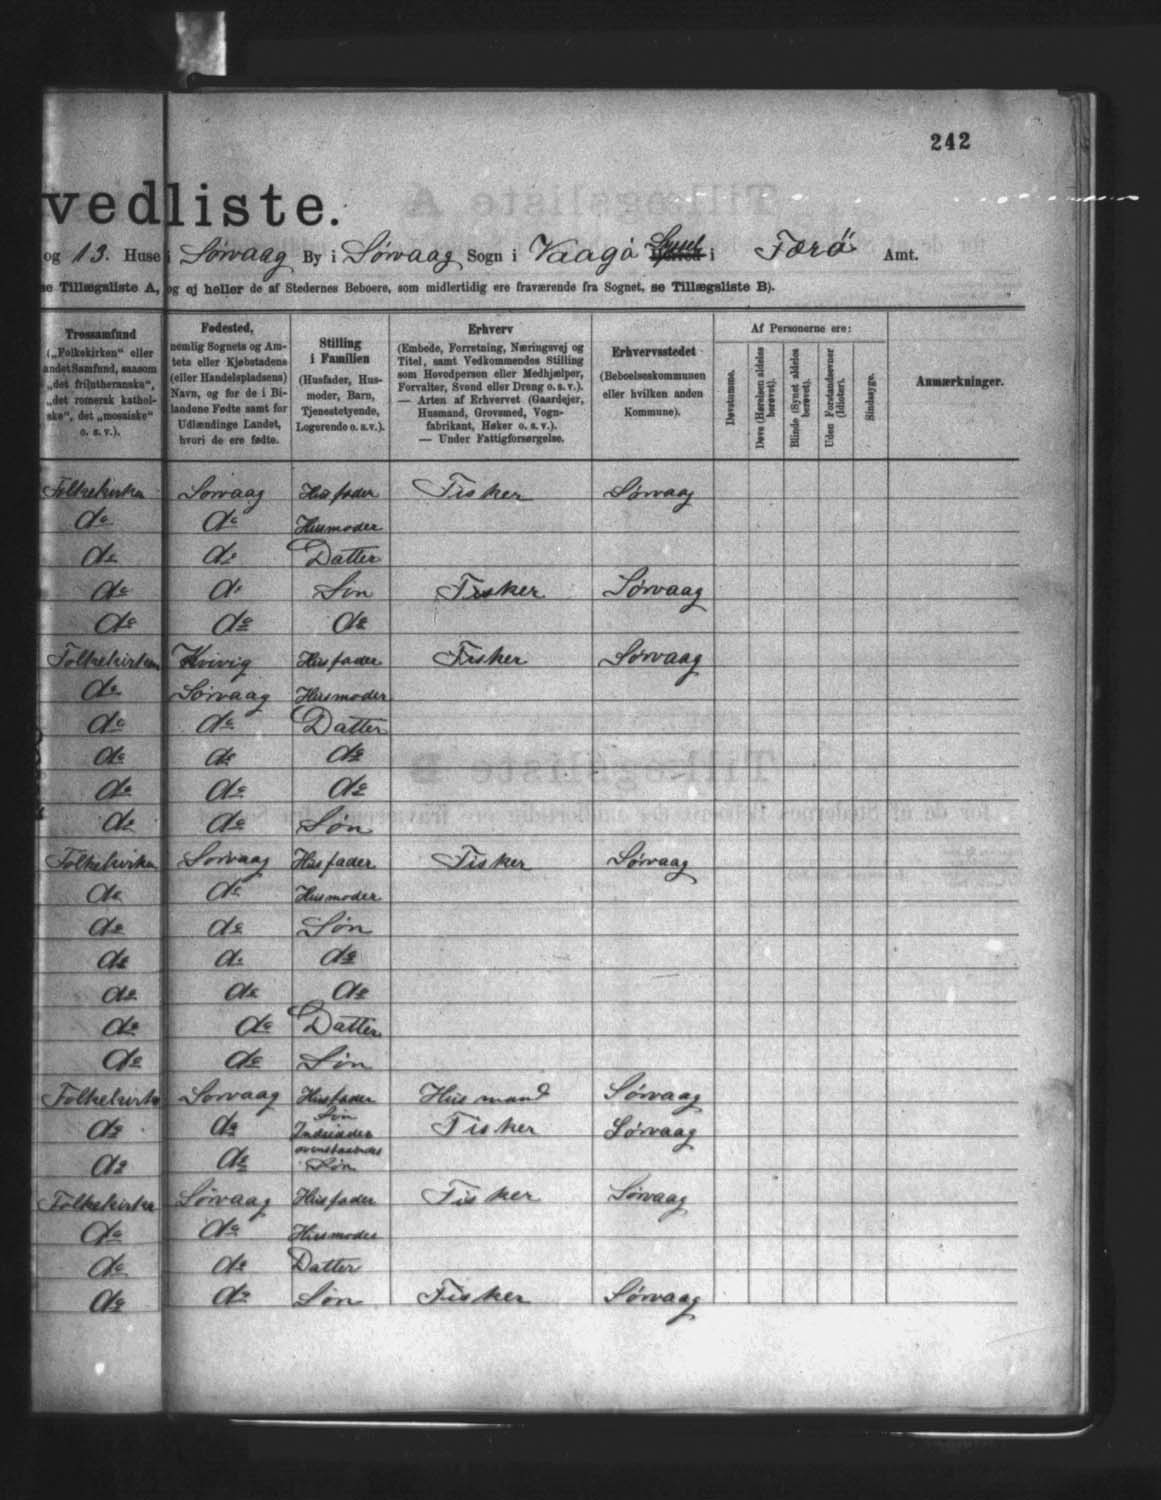 242
vedliste.
og 13. Huse i Sørvaag By i Sørvaag Sogn i Vaagø Herred Syssel i Færø Amt.
se Tillægsliste A, og ej heller de af Stedernes Beboere, som midlertidig ere fraværende fra Sognet, se Tillægsliste B).
Trossamfund
(„Folkekirken“ eller
andet Samfund, saasom
„det frilutheranske“,
„det romersk kathol-
ske“, det „mosaiske“
o. s. v.).
Fødested,
nemlig Sognets og Am-
tets eller Kjøbstadens
(eller Handelspladsens)
Navn, og for de i Bi-
landene Fødte samt for
Udlændinge Landet,
hvori de ere fødte.
Stilling
i Familien
(Husfader, Hus-
moder, Barn,
Tjenestetyende,
Logerende o. s. v.).
Erhverv
(Embede, Forretning, Næringsvej og
Titel, samt Vedkommendes Stilling
som Hovedperson eller Medhjælper,
Forvalter, Svend eller Dreng o. s. v.).
— Arten af Erhvervet (Gaardejer,
Husmand, Grovsmed, Vogn-
fabrikant, Høker o. s. v.).
— Under Fattigforsørgelse.
Erhvervsstedet
(Beboelseskommunen
eller hvilken anden
Kommune).
Af Personerne ere:
Døvstumme.
Døve (Hørelsen aldeles
berøvet).
Blinde (Synet aldeles
berøvet).
Uden Forstandsevner
(Idioter).
Sindssyge.
Anmærkninger.
Folkekirken Sørvaag Husfader Fisker Sørvaag
do do Husmoder
do do Datter
do do Søn Fisker Sørvaag
do do do
Folkekirken Kvivig Husfader Fisker Sørvaag
do Sørvaag Husmoder
do do Datter
do do do
do do do
do do Søn
Folkekirken Sørvaag Husfader Fisker Sørvaag
do do Husmoder
do do Søn
do do do
do do do
do do Datter
do do Søn
Folkekirke Sørvaag Husfader Husmand Sørvaag
do do Søn Fisker Sørvaag
do do ovenstaaendes Søn
Folkekirke Sørvaag Husfader Fisker Sørvaag
do do Husmoder
do do Datter
do do Søn Fisker Sørvaag